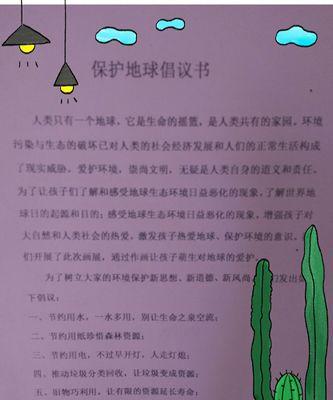 保护地球倡议书
人类只有一个地球，它是生命的摇篮，是人类共有的家园。环境
污染与生态的破坏已对人类的社会经济发展和人们的正常生活构成
了现实威胁。爱护环境，崇尚文明，无疑是人类自身的道义和责任。
为了让孩子们了解和感受地球生态环境日益恶化的现象，了解世界地
球日的起源和目的；感受地球生态环境日益恶化的现象，增强孩子对
大自然和人类社会的热爱，激发孩子热爱地球、保护环境的意识。
们开展了此次画展，通过作画让孩子萌生对地球的爱护。
为了树立大家的环境保护新思想、新道德、新风尚 们发出如
下倡议：
一、节约用水，一水多用，别让生命之泉空流；
二、节约用纸珍惜森林资源；
三、节约用电，不过早开灯，人走灯熄；
四、推动垃圾分类回收，让垃圾变成资源；
五、旧物巧利用，让有限的资源延长寿命；